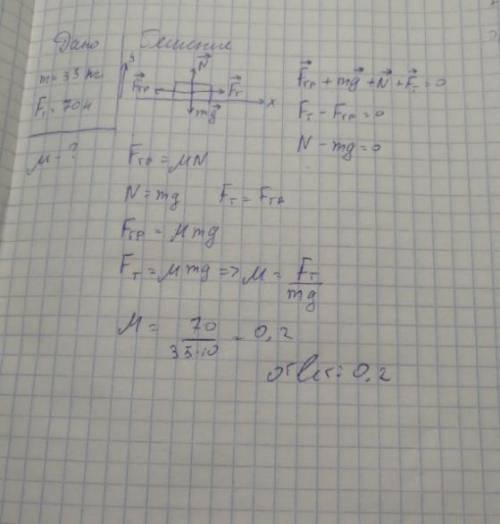 Дано
Решение
m = 35 кг
Fт = 70 Н
μ - ?
y
N
Fтр
Fт
mg
x
Fтр + mg + N + Fт = 0
Fт - Fтр = 0
N - mg = 0
Fтр = μN
N = mg Fт = Fтр
Fтр = μmg
Fт = μmg => μ = Fт/mg
μ = 70/35·10 = 0,2
ответ: 0,2